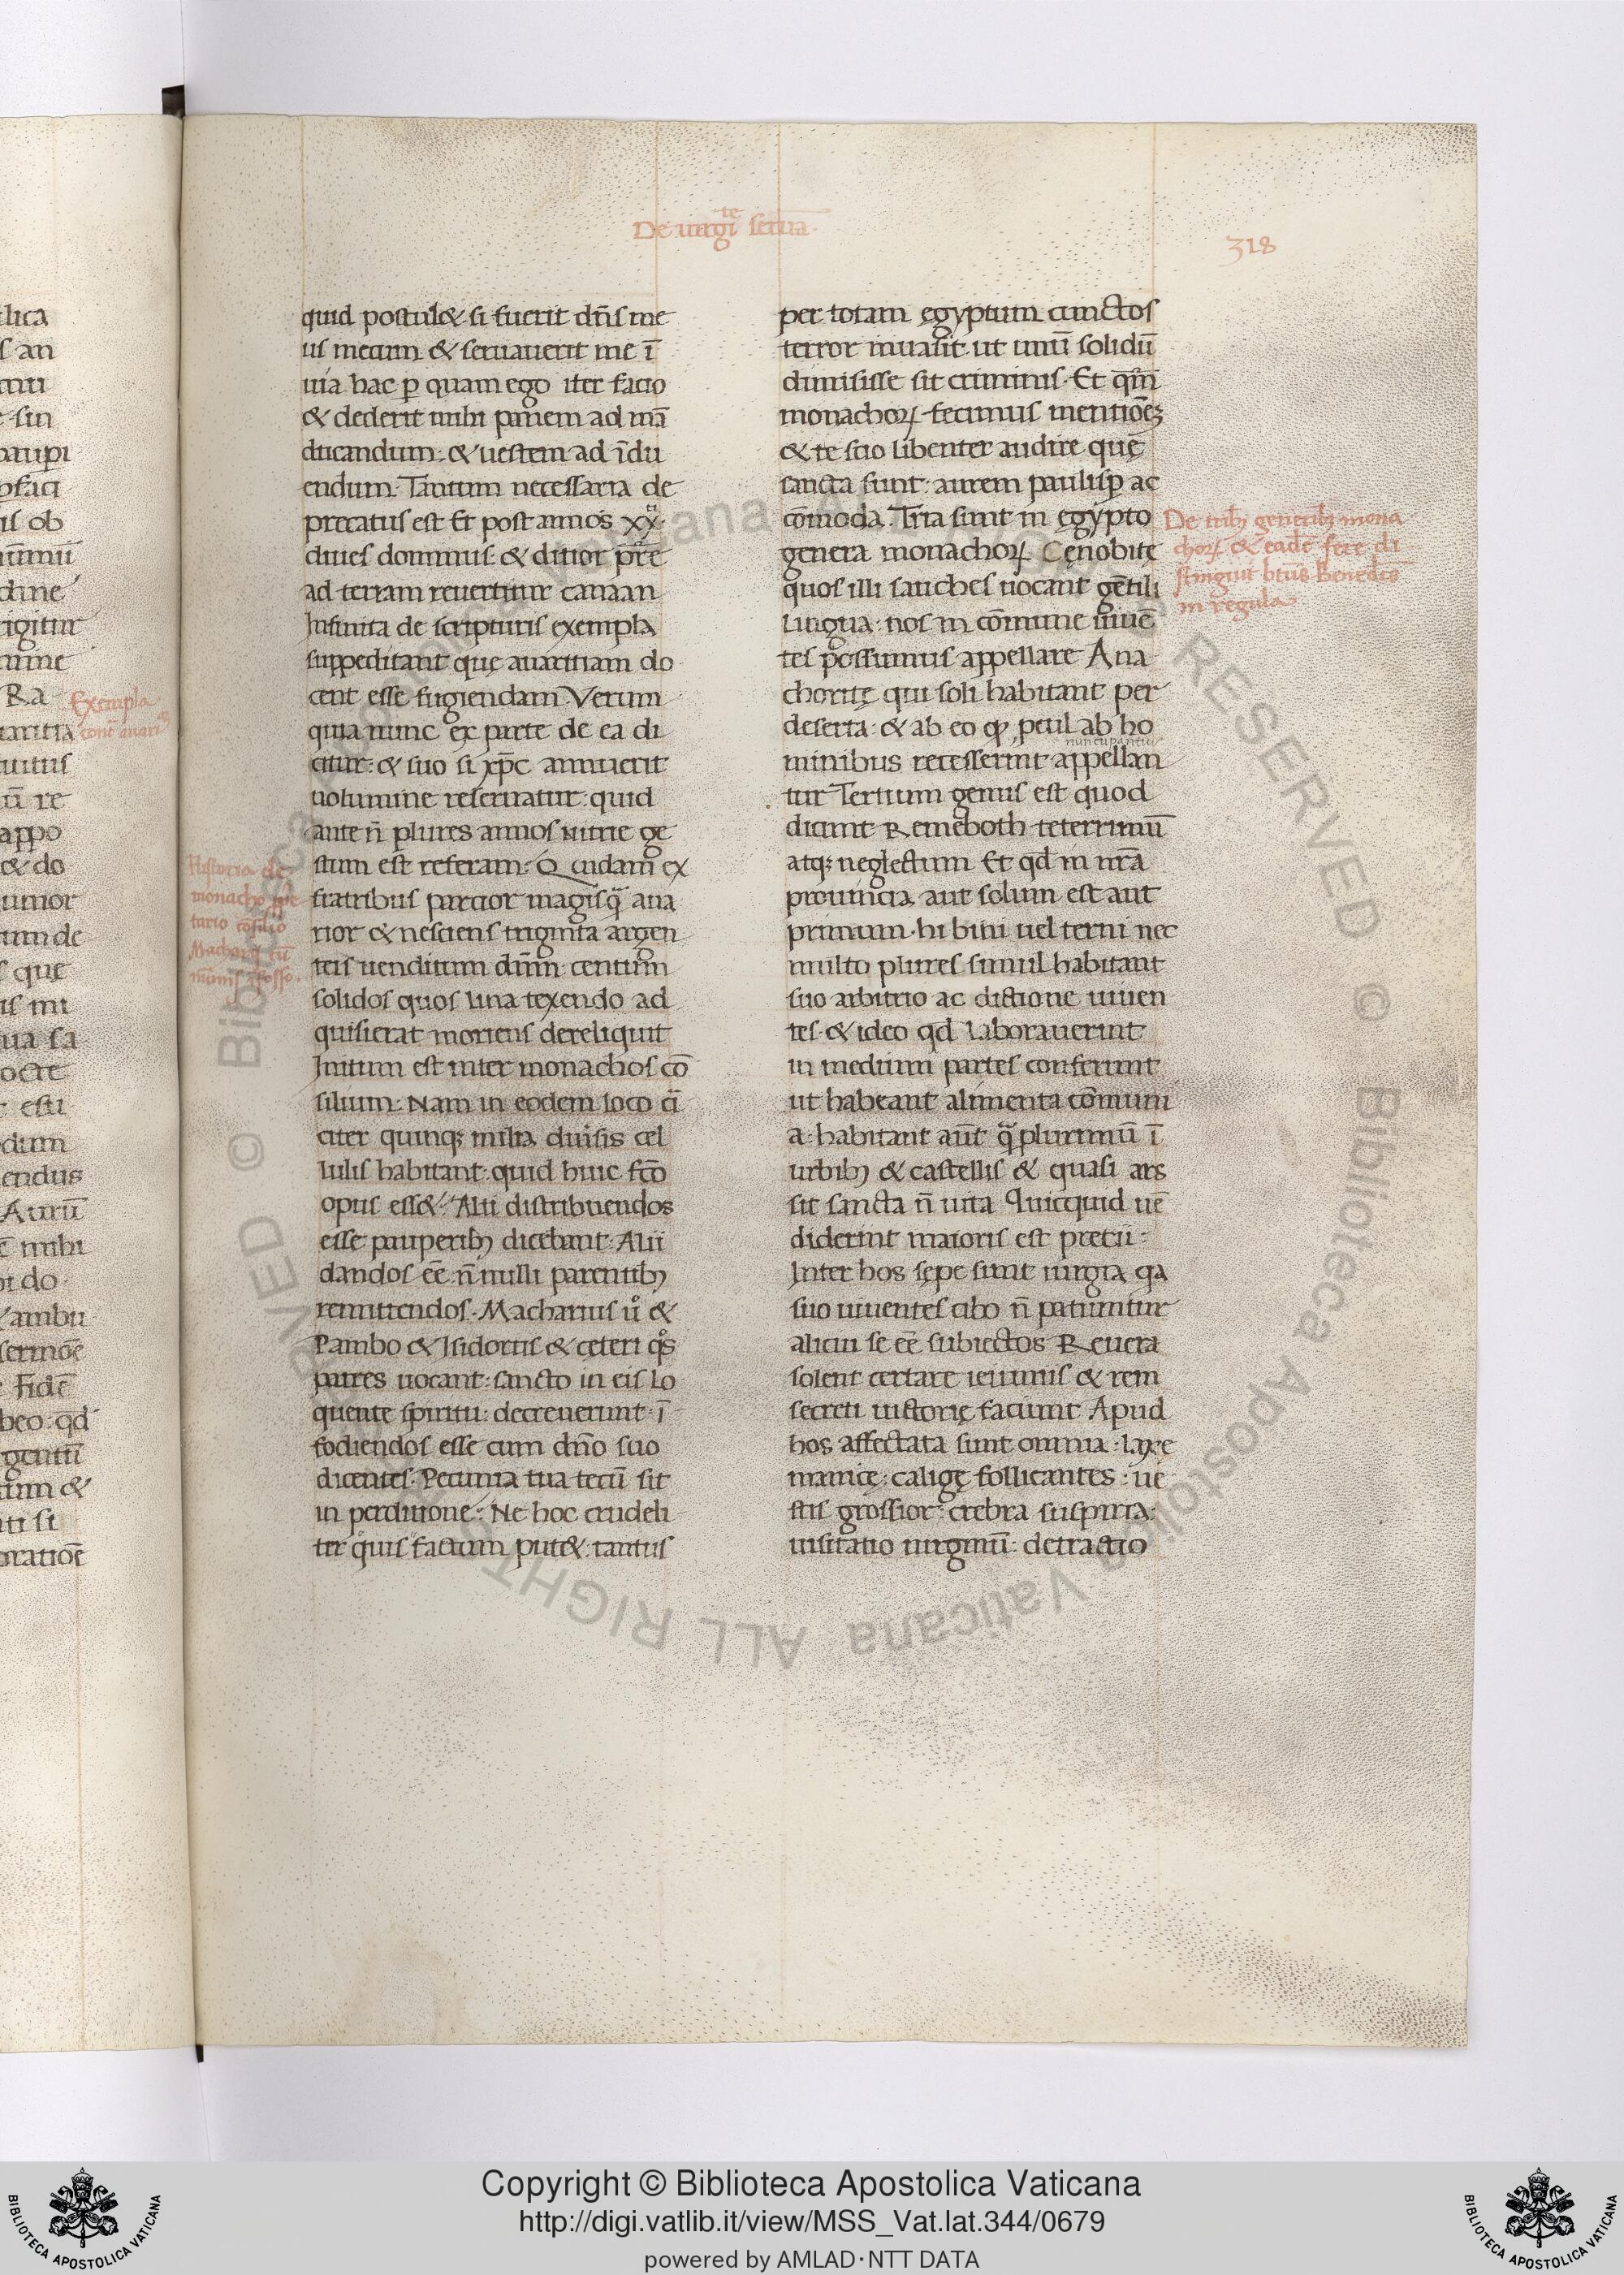 De uirgīte seruā
318
quid postul& si fuerit dn̄s me
us mecum & seruauerit me ī
uia hac ꝑ quam ego iter facio
& dederit mihi panem ad mā
ducandum: & uestem ad īdu
endum. Tantum necessaria de
precatus est Et post annos xx.
diues dominus: & ditior pr̄e
ad terram reuertitur canaan
Infinita de scripturis exempla
suppeditant quę auaritiam do
cent esse fugiendam. Verum
quia nunc ex parte de ea di
citur: & suo si xp̄c annuerit
uolumine reseruatur: quid
ante n̄ plures annos Nitrie ge
stum est referam. Quidam ex
fratribus parcior magisq̄ aua
rior & nesciens triginta argen
teis uenditum dn̄m: centum
solidos quos lina texendo ad
quisierat moriens dereliquit
Initum est inter monachos cō
silium. Nam in eodem loco ci
citer quinq; milia diuisis cel
lulis habitant: quid huic fc̄o
opus ess&. Alii distribuendos
esse pauperibꝫ dicebant. Alii
dandos eē. n̄nulli parentibꝫ
remittendos. Macharius ů &
Pambo & Isidorus & cęteri qo̊s
patres uocant: sancto in eis lo
quente spiritu: decreuerunt ī
fodiendos esse cum dn̄o suo
dicentes. Pecunia tua tecū sit
in perditione. Ne hoc crudeli
ter quis factum put&: tantus
per totam ęgyptum cunctos
terror inuasit. ut unū solidū
dimisisse sit criminis. Et qm̄
monachoꝝ fecimus mentiōeꝫ
& te scio libenter audire quę
sancta sunt: aurem paulisꝑ ac
cōmoda. Tria sunt in ęgypto
genera monachoꝝ. Cęnobitę
quos illi sauches uocant gētili
Lingua: nos in cōmune uiuē
tes possumus appellare Ana
choritę qui soli habitant per
deserta: & ab eo qͩ ꝓcul ab ho
nuncupantur
minibus recesserint appellan
tur Tertium genus est quod
dicunt Remeboth teterrimū
atq; neglectum Et qd̄ in nr̄a
prouincia aut solum est aut
primum. hi bini uel terni nec
multo plures simul habitant
suo arbitrio ac dictione uiuen
tes. & ideo qd̄ laborauerint
in medium partes conferunt
ut habeant alimenta cōmuni
a: habitant aūt qͣ plurimū ī
urbibꝫ & castellis & quasi ars
sit sancta n̄ uita Quicquid uē
diderint maioris est pretii:
Inter hos sępe sunt iurgia qa
suo uiuentes cibo n̄ patiuntur
alicui se eē subiectos Reuera
solent certare ieiuniis & rem
secreti uictorię faciunt Apud
hos affectata sunt omnia: laxę
manicę: caligę follicantes: ue
stis grossior: crebra suspiria:
uisitatio uirginū: detractio
De tribꝫ generibꝫ mona
choꝝ & eadē fere di
stinguit btūs Benedcs̄
in regula
Historia de
monacho
tario cōsilio
Macharii cū
Exempla
cont̄ auari
lica
s an
sin
paupi
is ob
igitur
Ra
aritia
uitus
ū re
appo
& do
umor
um de
s que
is mi
ua sa
octe
dum
endus
Aurū
mihi
ambu
sermōe
Fidē
beo: qd̄
gentū
tum &
ti si
oratiōe
Copyright © Biblioteca Apostolica Vaticana
http://digi.vatlib.it/view/MSS_Vat.lat.344/0679
powered by AMLAD·NTT DATA
BIBLIOTECA APOSTOLICA VATICANA
BIBLIOTECA APOSTOLICA VATICANA